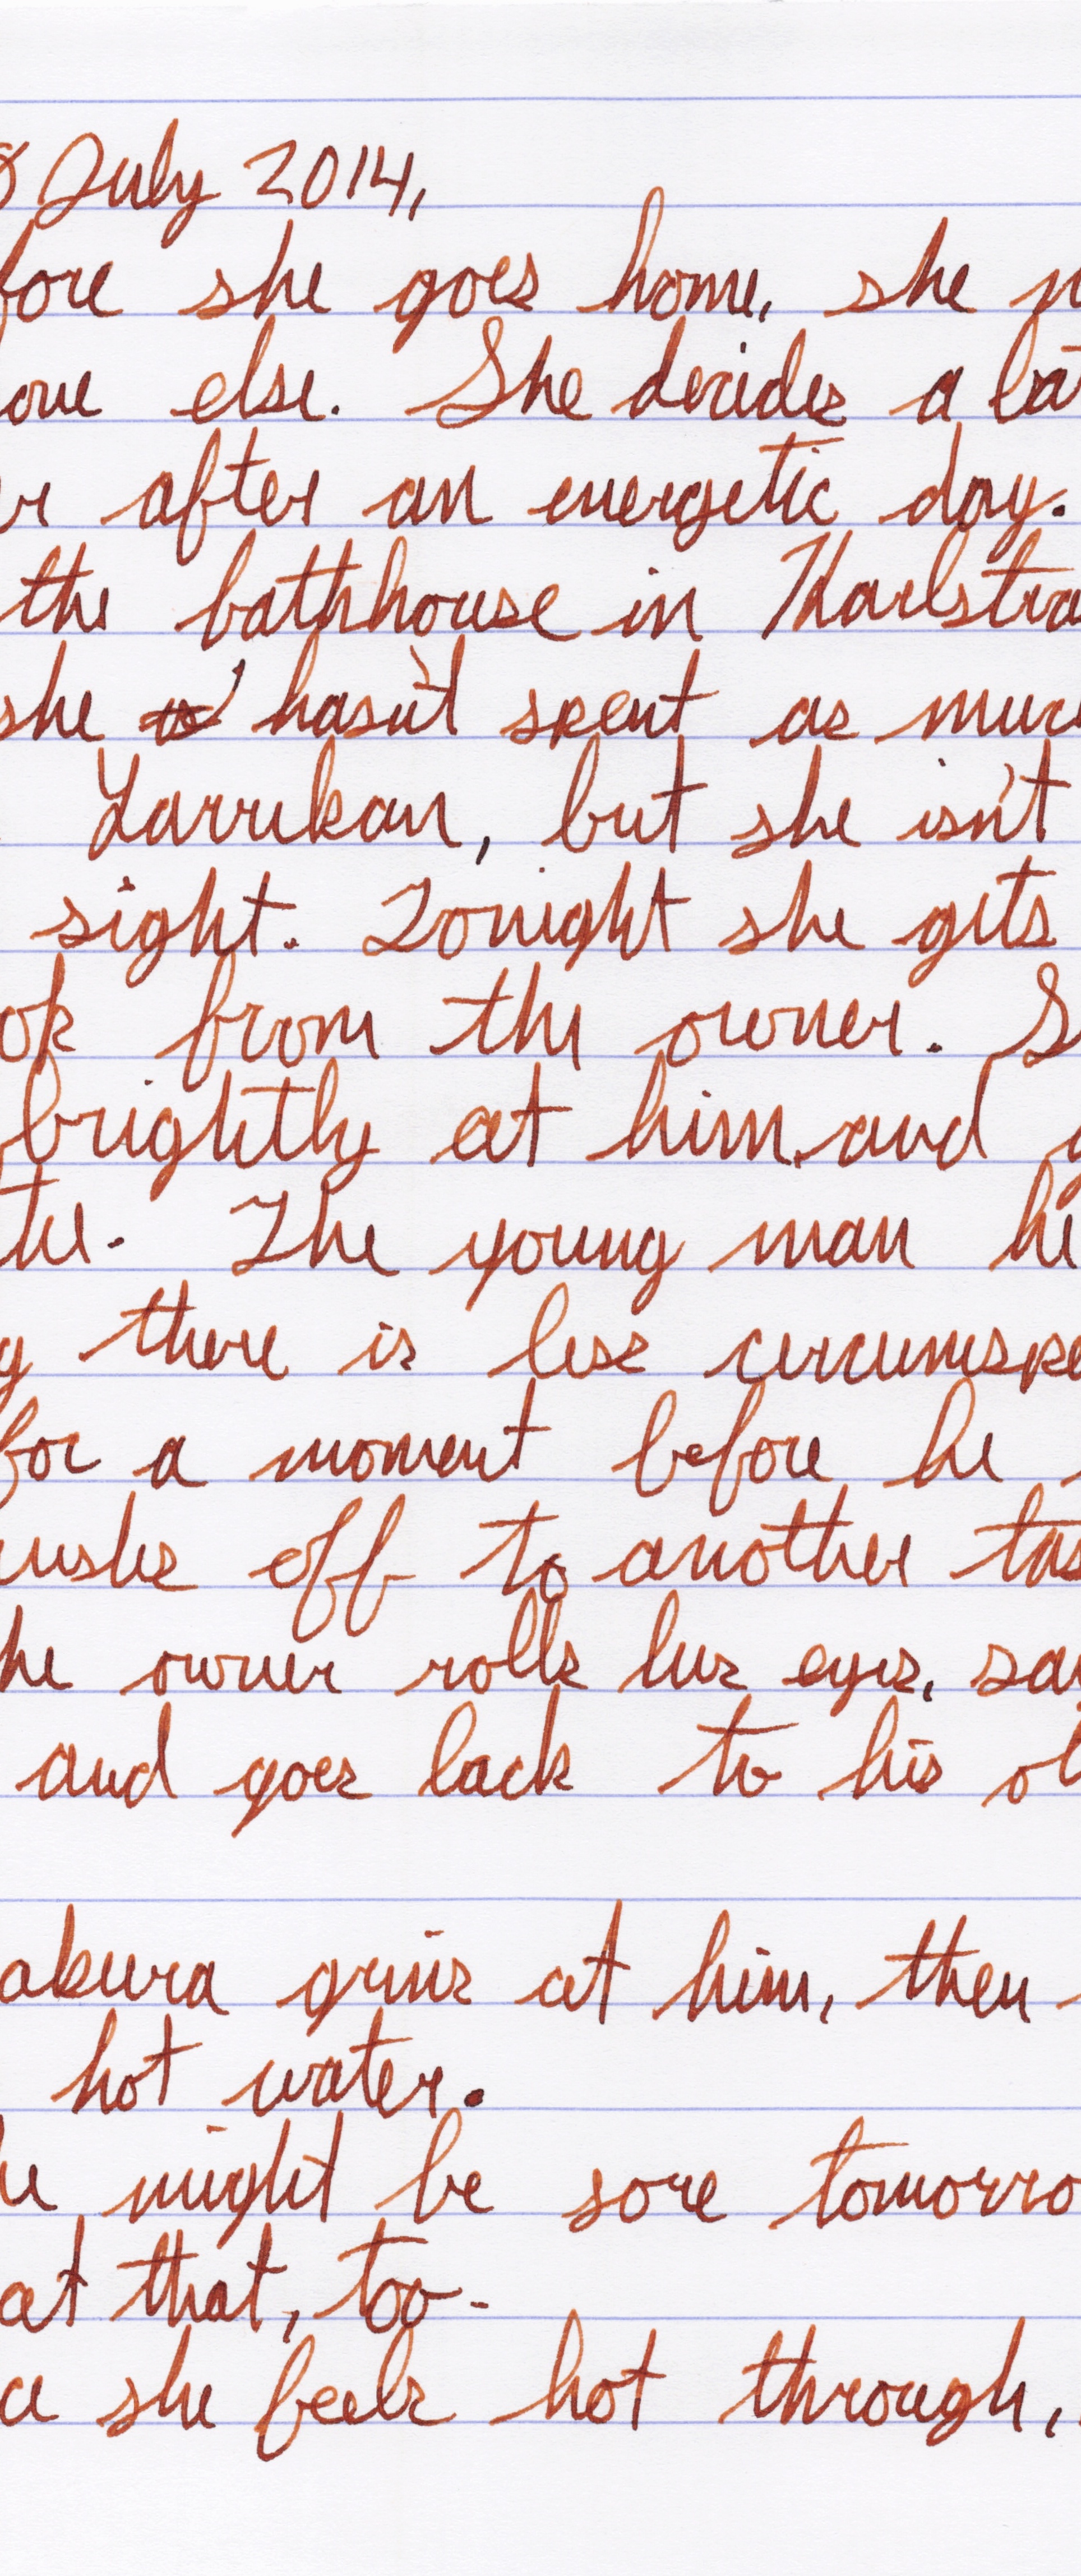 July 2014,
fore she goes home, she
one else. She decides a bat
er after an energetic day.
the bathhouse in Karlstra
she hasn't spent as muc
Yarrikan, but she isn't
sight. Tonight she gets
ok from the owner. S
brightly at him and g
The young man he
g there is less circumspe
for a moment before he
rushes off to another tas
he owner rolls his eyes, say
and goes back to his ot
akura grins at him, then
hot water.
he might be sore tomorro
at that, too.
ce she feels hot through,